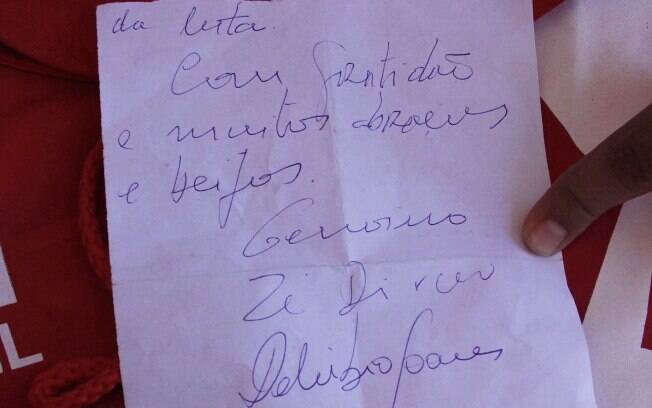 da luta.
Com gratidão
e muitos abraços
e beijos.
Genoino
Zé Dirceu
Delúbio Soares
IL